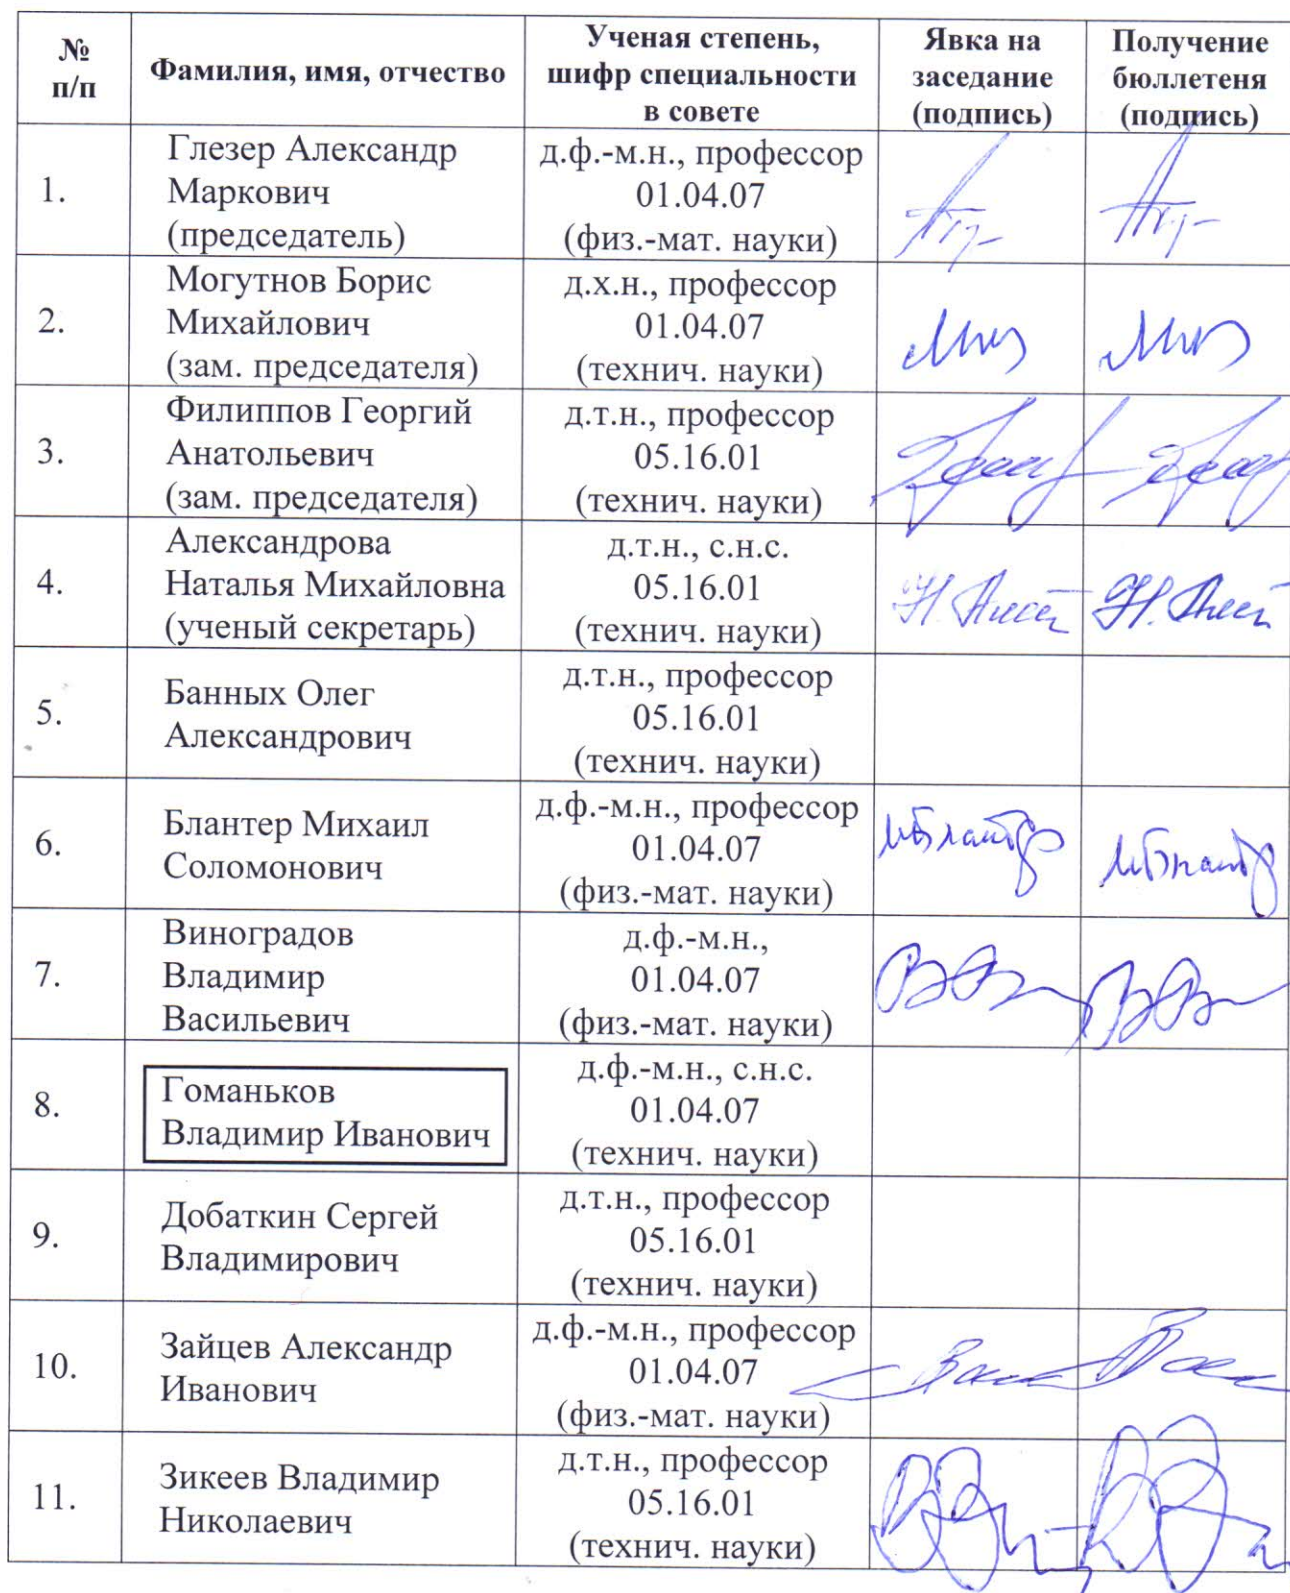 № п/п
Фамилия, имя, отчество
Ученая степень, шифр специальности в совете
Явка на заседание (подпись)
Получение бюллетеня (подпись)
1.
Глезер Александр
Маркович
(председатель)
д.ф.-м.н., профессор
01.04.07
(физ.-мат. науки)
2.
Могутнов Борис
Михайлович
(зам. председателя)
д.х.н., профессор
01.04.07
(технич. науки)
3.
Филиппов Георгий
Анатольевич
(зам. председателя)
д.т.н., профессор
05.16.01
(технич. науки)
4.
Александрова
Наталья Михайловна
(ученый секретарь)
д.т.н., с.н.с.
05.16.01
(технич. науки)
5.
Банных Олег
Александрович
д.т.н., профессор
05.16.01
(технич. науки)
6.
Блантер Михаил
Соломонович
д.ф.-м.н., профессор
01.04.07
(физ.-мат. науки)
7.
Виноградов
Владимир
Васильевич
д.ф.-м.н.,
01.04.07
(физ.-мат. науки)
8.
Гоманьков
Владимир Иванович
д.ф.-м.н., с.н.с.
01.04.07
(технич. науки)
9.
Добаткин Сергей
Владимирович
д.т.н., профессор
05.16.01
(технич. науки)
10.
Зайцев Александр
Иванович
д.ф.-м.н., профессор
01.04.07
(физ.-мат. науки)
11.
Зикеев Владимир
Николаевич
д.т.н., профессор
05.16.01
(технич. науки)